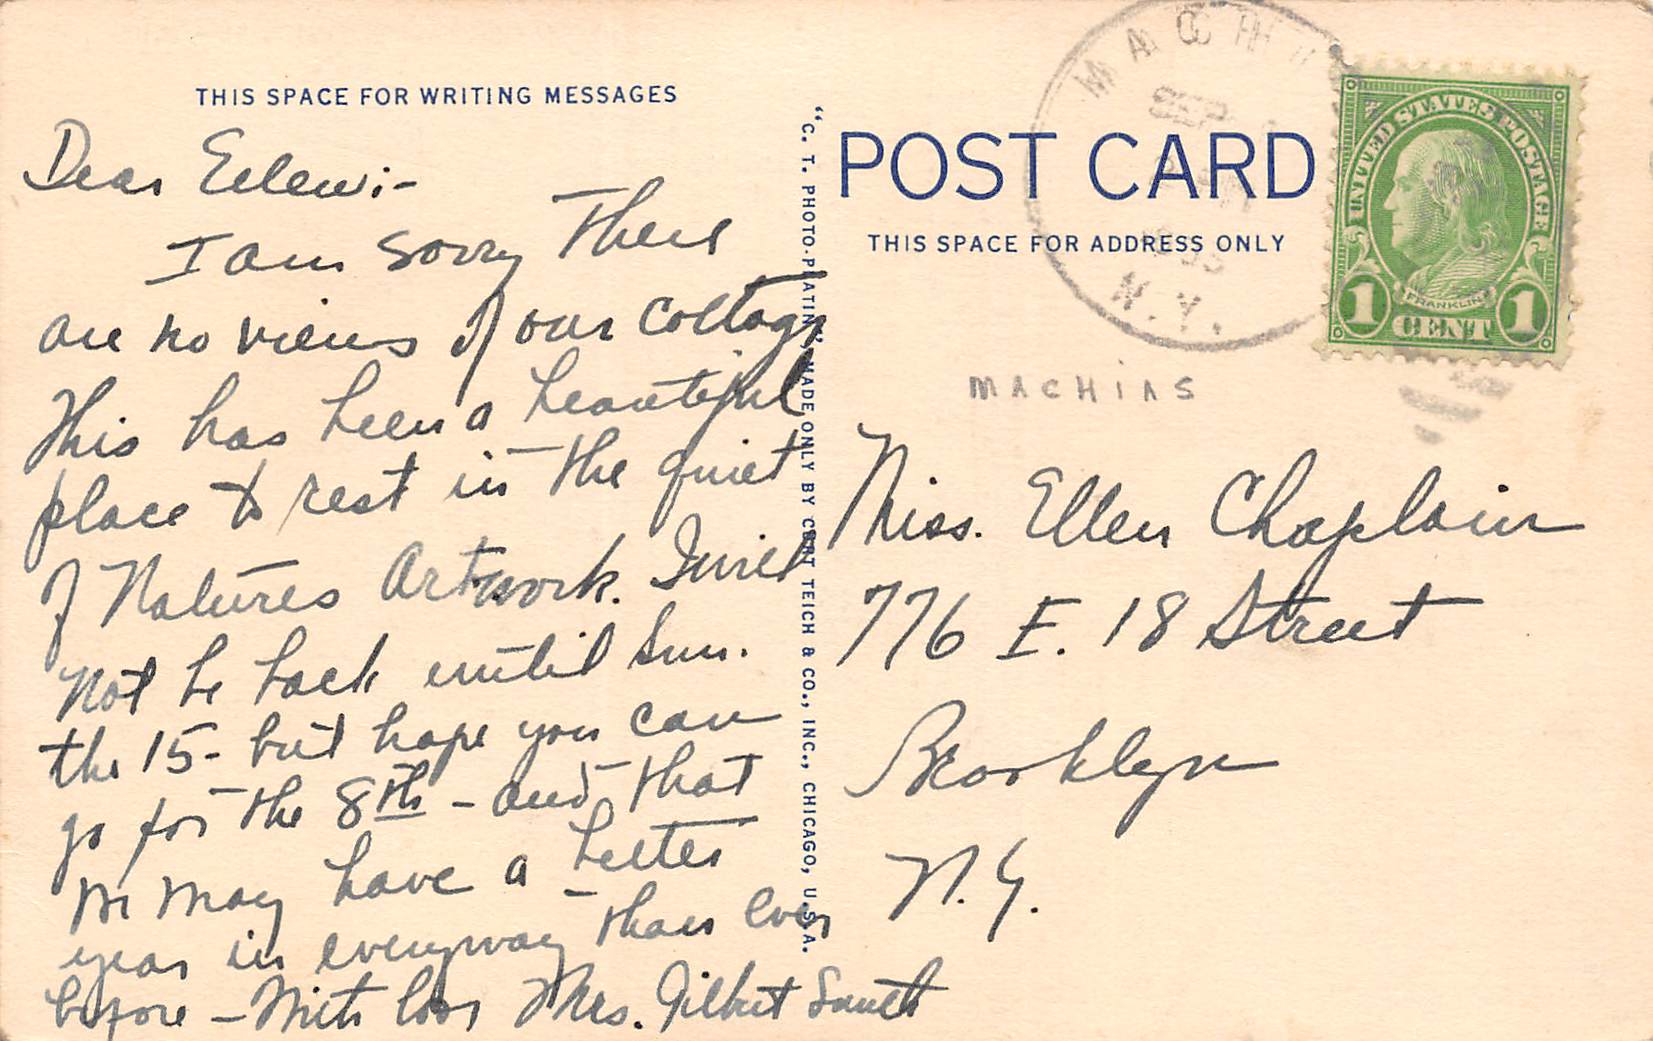 THIS SPACE FOR WRITING MESSAGES
Dear Ellen:-
I am sorry there
are no views of our Cottage
This has been a beautiful
place to rest in the quiet
of Natures Artwork. I will
Not be back until Sun.
the 15- but hope you can
go for the 8th - and that
we may have a better
year in everyway than ever
before - With love Mrs. Gilbert Smith
"C. T. PHOTO-PLATIN" MADE ONLY BY CURT TEICH & CO., INC., CHICAGO, U.S.A.
POST CARD
THIS SPACE FOR ADDRESS ONLY
MACHI
SEP
N.Y.
UNITED STATES POSTAGE
FRANKLIN
1 CENT 1
MACHIAS
Miss. Ellen Chaplain
776 E. 18 Street
Brooklyn
N.Y.